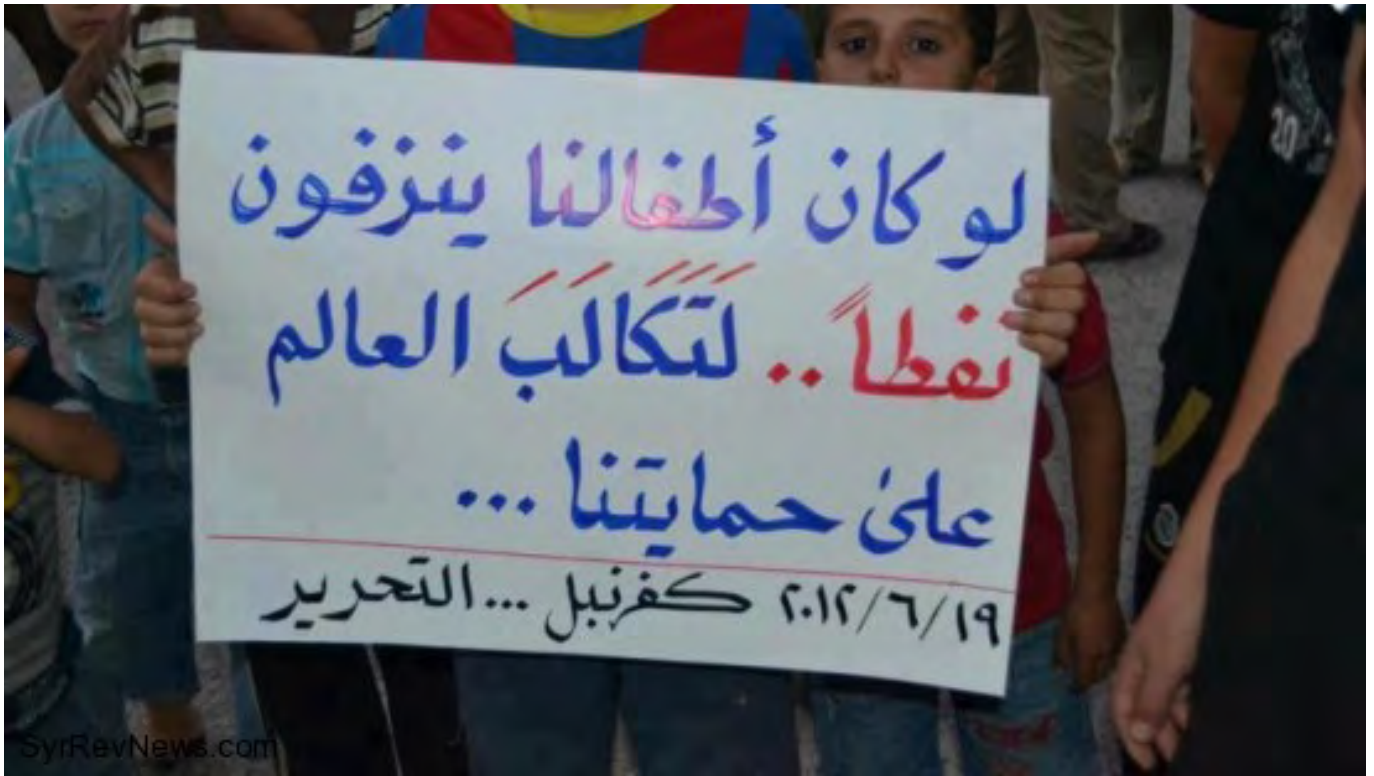 لو كان أطفالنا ينزفون
نفطاً .. لَتَكَالَبَ العالم
على حمايتنا ...
٢٠١٢/٦/١٩ كفرنبل ... التحرير
20
SyrRevNews.com